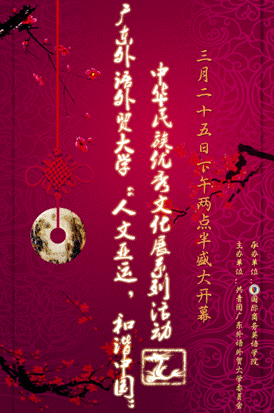 三月二十五日下午两点半盛大开幕
中华民族优秀文化展系列活动
广东外语外贸大学“人文亚运，和谐中国”
承办单位：国际商务英语学院
主办单位：共青团广东外语外贸大学委员会